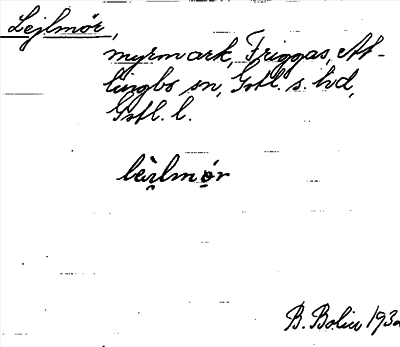 Lejlmör,
myrmark, Friggas, At-
lingbo sn, Gotl. s. hd,
Gotl. l.
lèi̯lmọ́r
B. Bolin 1932